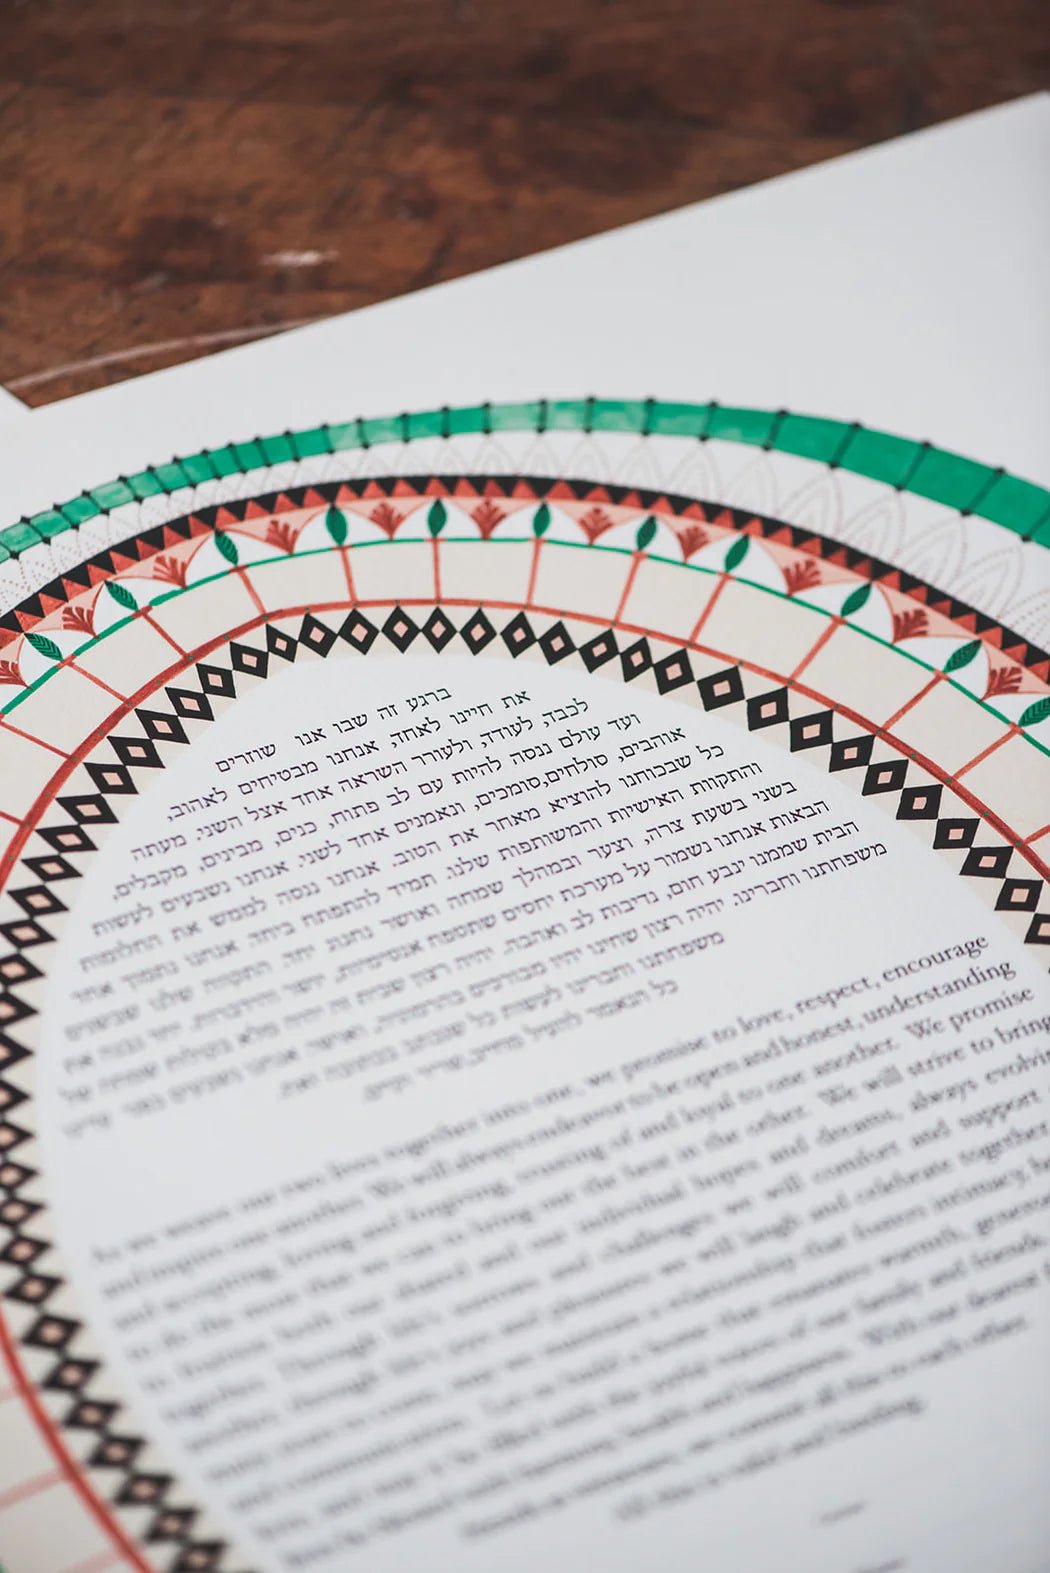 ברגע זה שבו אנו שוזרים
את חיינו לאחד, אנחנו מבטיחים לאהוב,
לכבד, לעודד, ולעורר השראה אחד אצל השני. מעתה
ועד עולם ננסה להיות עם לב פתוח, כנים, מבינים, מקבלים,
אוהבים, סולחים,סומכים, ונאמנים אחד לשני. אנחנו נשבעים לעשות
כל שבכוחנו להוציא מאחר את הטוב. אנחנו ננסה לממש את החלומות
והתקוות האישיות והמשותפות שלנו. תמיד להתפתח ביחד. אנחנו נתמוך אחד
בשני בשעת צרה, וצער ובמהלך שמחה ואושר נחגוג יחד. התקווה שלנו שבשנים
הבאות אנחנו נשמור על מערכת יחסים שתטפח אינטימיות, יושר והידברות. יחד נבנה את
הבית שממנו ינבע חום, נדיבות לב ואהבה. יהיה רצון שבית זה יהיה מלא בקולות שמחה של
משפחתנו וחברינו. יהיה רצון שחיינו יהיו מבורכים בהרמוניה, ואושר. אנחנו נשבעים בפני
משפחתנו וחברינו לעשות כל שנכתב בכתובה זאת.
כל הנאמר שריר וקיים.
As we weave our two lives together into one, we promise to love, respect, encourage
and inspire one another. We will always endeavor to be open and honest, understanding
and accepting, loving and forgiving, trusting of and loyal to one another. We promise
to do the most that we can to bring out the best in the other. We will strive to bring
to fruition both our shared and our individual hopes and dreams, always evolving
together. Through life's sorrows and challenges we will comfort and support
another, through life's joys and pleasures we will laugh and celebrate together.
many years to come, may we maintain a relationship that fosters intimacy,
and communication. Let us build a home that emanates warmth,
love, and may it be filled with the joyful voices of our family and friends.
lives be blessed with harmony, health and happiness. With our dearest
friends as witnesses, we commit all this to each other.
All this is valid and binding.